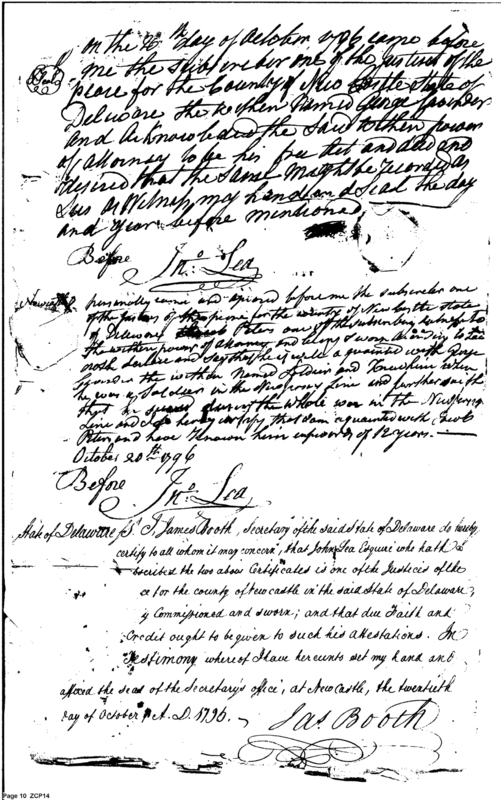 On the 26th day of October 1796 came before
me the Subscriber one of the Justices of the
(Seal) peace for the County of New Castle State of
Delaware the within Named George
and Acknowledged the said within power
of attorney to be his free Act and deed and
desired that the Same Might be recorded as
Such as Witness my hand and Seal the day
and year before mentioned
Before Jno. Lea
personally came and before me the Subscriber one
of the Justices of the peace for the county of New Castle State
of Delaware Jacob Peters one of the subscribing witnesses to
the within power of attorney and being Sworn according to law
doth declare and Say that he is well acquainted with George
the within Named Soldier and knew him when
he was a Soldier in the New Jersey Line and further saith
that he served during the whole war in the New Jersey
Line and I do hereby certify that I am acquainted with Jacob
Peters and have known him upwards of 12 years.
October 20th 1796
Before Jno. Lea
State of Delaware Ss. I, James Booth, Secretary of the said State of Delaware do hereby
certify to all whom it may concern, that John Lea Esquire who hath
scribed the two above Certificates is one of the Justices of the
ce for the county of Newcastle in the said State of Delaware
y Commissioned and sworn; and that due Faith and
Credit ought to be given to such his attestations. In
Testimony whereof I have hereunto set my hand and
affixed the seal of the Secretary's office, at New Castle, the twentieth
day of October A.D. 1796.
Jas. Booth
Page 10 ZCP14